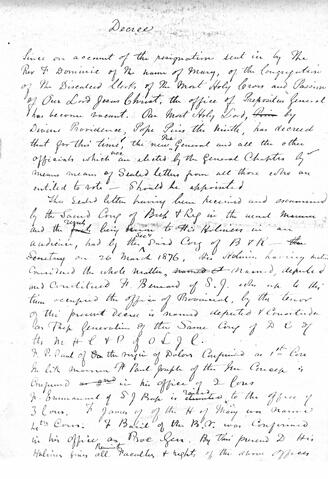 Decree
Since on account of the resignation sent in by The
Rev F Dominic of the name of Mary, of the Congregation
of the Discalced Clerks of the Most Holy Cross and Passion
of Our Lord Jesus Christ, the office of Prepositus General
has become vacant. Our Most Holy Lord, by
Divine Providence, Pope Pius the Ninth, has decreed
that for this time, the new General and all the other
officials which are elected by the General Chapters by
means of Sealed letters from all those who are
entitled to vote — Should be appointed
The Sealed letters having been received and examined
by the Sacred Cong of Bps & Reg in the usual manner
and the being to His Holiness in an
audience, had by the Said Cong of B & R
Secretary on 26 March 1876, His Holiness having
Considered the whole matter, named, deputed
and Constituted F Bernard of S.J. who up to this
time occupied the office of Provincial, by the tenor
of this present decree is named deputed & Constituted
as Prep General of the Same Cong of D C of
the M H C & P of O L J C.
F. Paul of the Virgin of Dolors Confirmed as 1st Cons
In like manner F Paul Joseph of the Im Concep is
Confirmed in his office of 2 Cons
F Emmanuel of S J Bap is to the office of
3 Cons. F James of the H of Mary was named
4th Cons. F Basil of the B.V. was Confirmed
in his office as Proc Gen. By this present D His
Holiness gives all Faculties & rights of the above offices